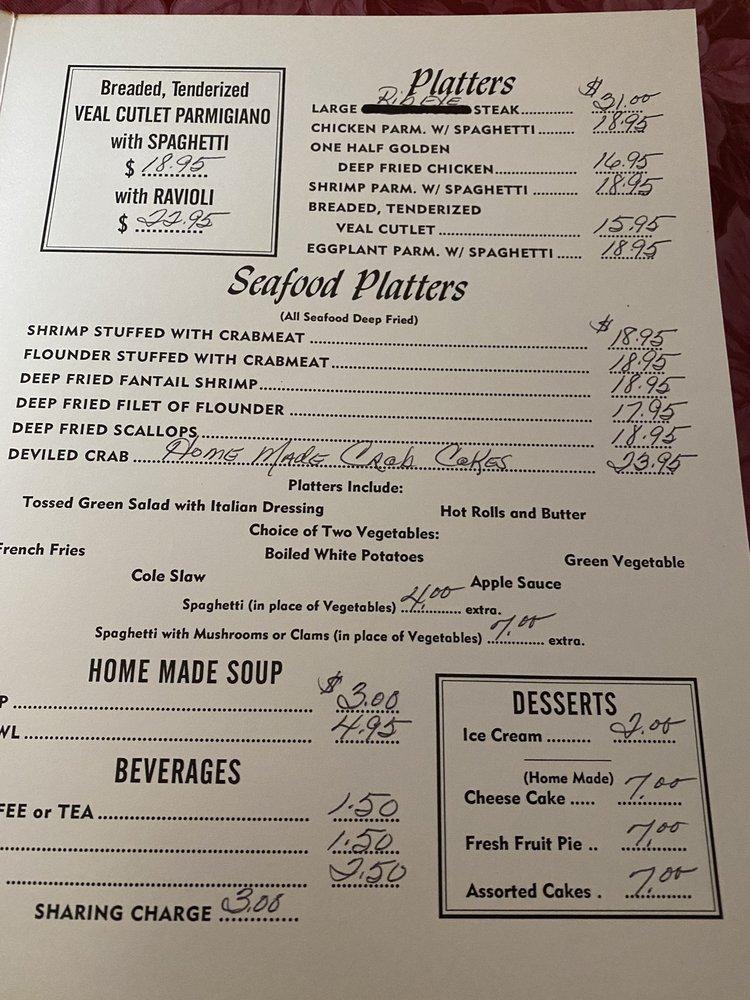 Breaded, Tenderized
VEAL CUTLET PARMIGIANO
with SPAGHETTI
$ 18.95
with RAVIOLI
$ 22.95
Platters
LARGE Rib EYE STEAK............ $ 31.00
CHICKEN PARM. W/ SPAGHETTI ......... 18.95
ONE HALF GOLDEN
DEEP FRIED CHICKEN.................... 16.95
SHRIMP PARM. W/ SPAGHETTI .......... 18.95
BREADED, TENDERIZED
VEAL CUTLET ................................ 15.95
EGGPLANT PARM. W/ SPAGHETTI ...... 18.95
Seafood Platters
(All Seafood Deep Fried)
SHRIMP STUFFED WITH CRABMEAT ........ $ 18.95
FLOUNDER STUFFED WITH CRABMEAT........ 18.95
DEEP FRIED FANTAIL SHRIMP........ 18.95
DEEP FRIED FILET OF FLOUNDER ........ 17.95
DEEP FRIED SCALLOPS........ 18.95
DEVILED CRAB ..... Home Made Crab Cakes ..... 23.95
Platters Include:
Tossed Green Salad with Italian Dressing Hot Rolls and Butter
Choice of Two Vegetables:
French Fries Boiled White Potatoes Green Vegetable
Cole Slaw Apple Sauce
Spaghetti (in place of Vegetables) 4.00 extra.
Spaghetti with Mushrooms or Clams (in place of Vegetables) 7.00 extra.
HOME MADE SOUP
P ........ $ 3.00
WL ........ 4.95
BEVERAGES
FEE or TEA ........ 1.50
........ 1.50
........ 2.50
SHARING CHARGE 3.00
DESSERTS
Ice Cream ......... 2.00
(Home Made)
Cheese Cake ..... 7.00
Fresh Fruit Pie .. 7.00
Assorted Cakes . 7.00